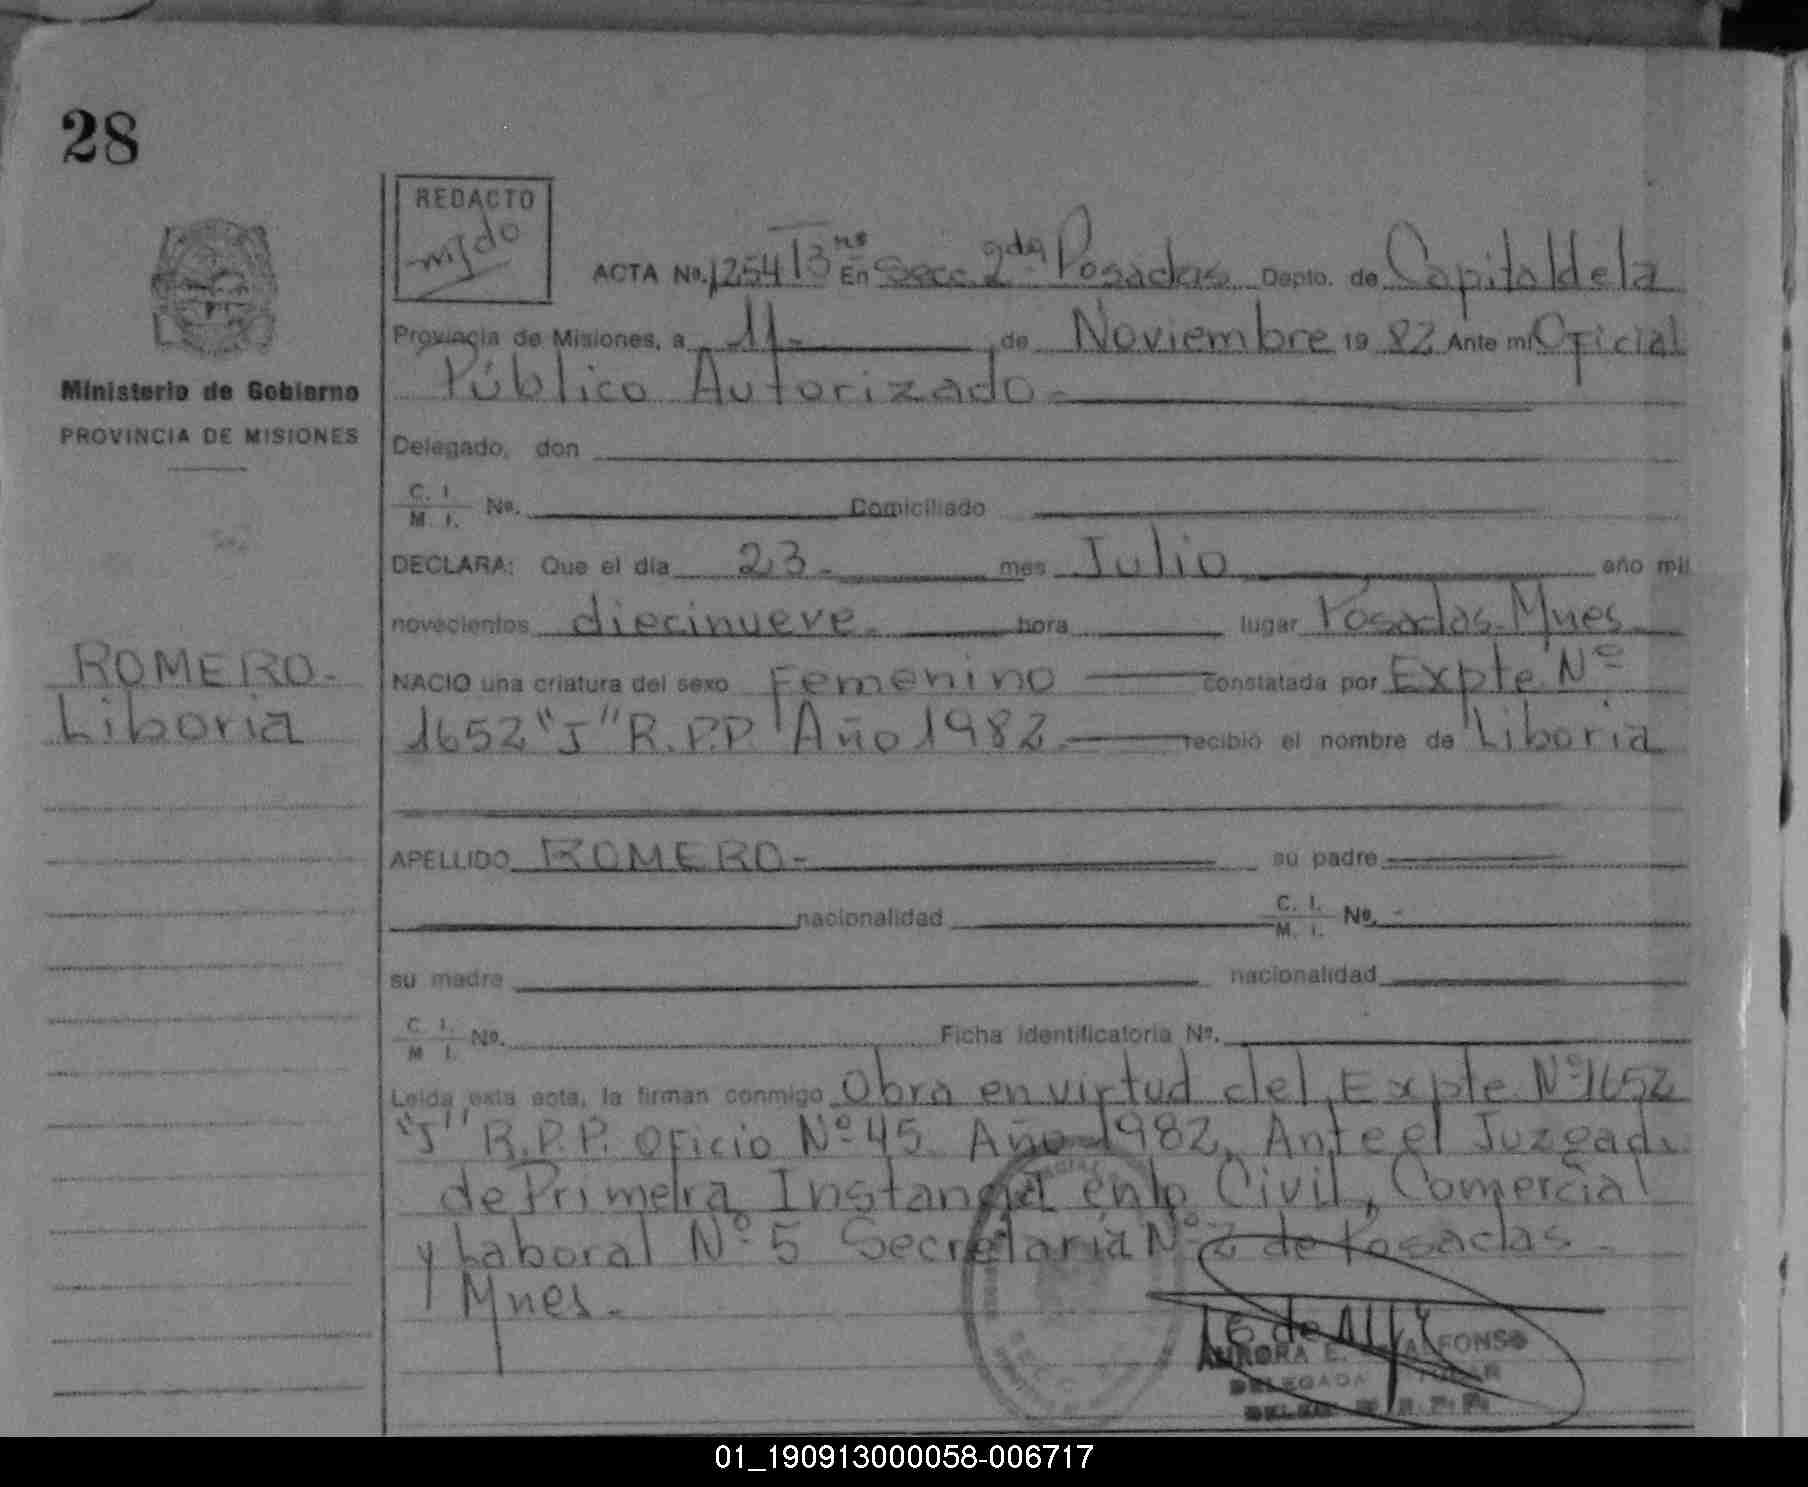 28
REDACTO
ACTA No. 1254 T3 ns En Secc. 2da Posadas Depto. de Capital de la
Provincia de Misiones, a 11- de Noviembre 1982 Ante mi Oficial
Público Autorizado-
Ministerio de Gobierno
PROVINCIA DE MISIONES
Delegado, don
C. I.
M. I. No. Domiciliado
DECLARA: Que el dia 23- mes Julio año mil
novecientos diecinueve- hora lugar Posadas-Mnes
ROMERO-
Liboria
NACIO una criatura del sexo Femenino constatada por Expte. Nº
1652 "J" R.P.P. Año 1982- recibió el nombre de Liboria
APELLIDO ROMERO- su padre
nacionalidad C. I.
M. I. No. -
su madre nacionalidad
C. I.
M I. No. Ficha identificatoria No.
Leida esta acta, la firman conmigo Obra en virtud del Expte. Nº 1652
"J" R.P.P. Oficio Nº 45 Año 1982, Ante el Juzgado
de Primera Instancia en lo Civil, Comercial
y Laboral Nº 5 Secretaria Nº 2 de Posadas-
Mnes-
AURORA E. ALFONSO
DELEGADA
01_190913000058-006717